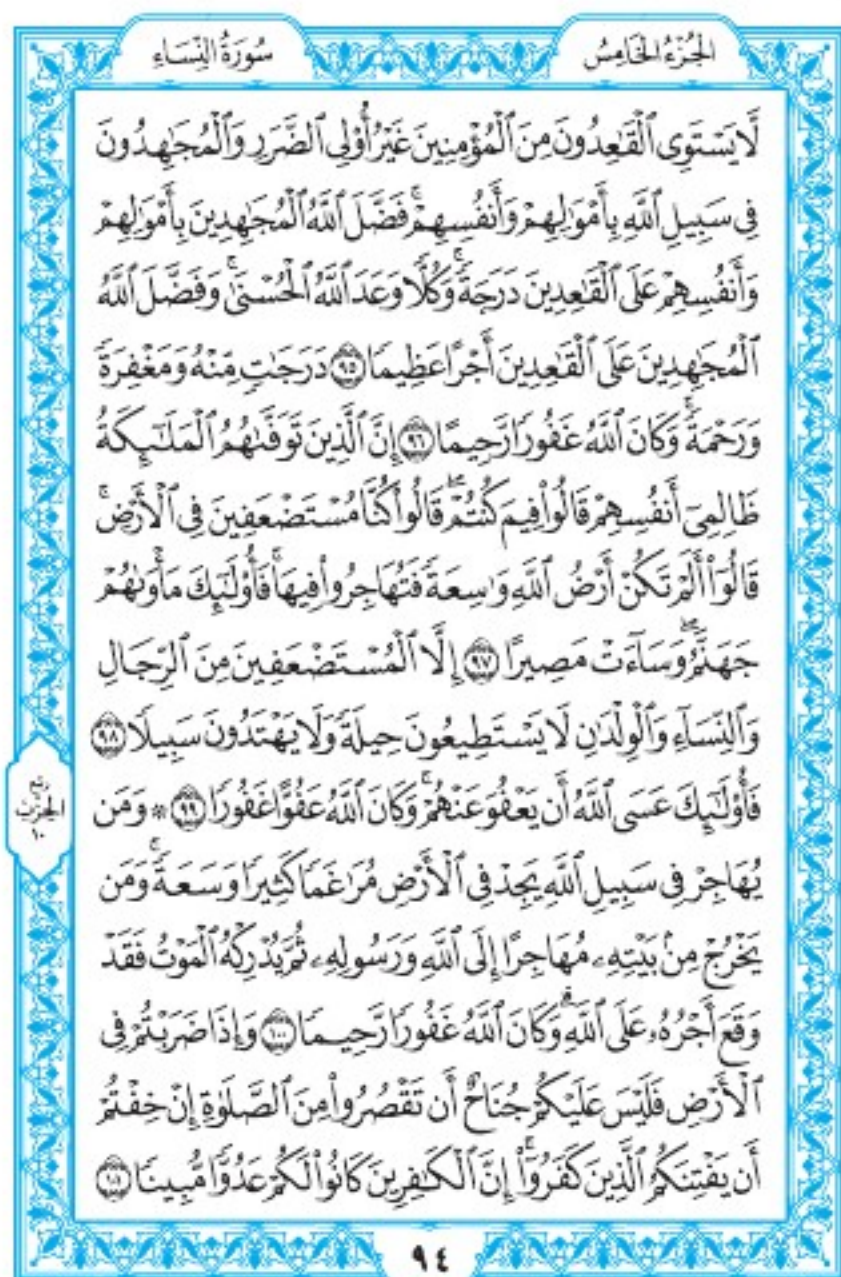 سُورَةُ النِّسَاءِ
الجُزْءُ الخَامِسُ
لَّا يَسْتَوِى ٱلْقَٰعِدُونَ مِنَ ٱلْمُؤْمِنِينَ غَيْرُ أُوْلِى ٱلضَّرَرِ وَٱلْمُجَٰهِدُونَ
فِى سَبِيلِ ٱللَّهِ بِأَمْوَٰلِهِمْ وَأَنفُسِهِمْۚ فَضَّلَ ٱللَّهُ ٱلْمُجَٰهِدِينَ بِأَمْوَٰلِهِمْ
وَأَنفُسِهِمْ عَلَى ٱلْقَٰعِدِينَ دَرَجَةًۚ وَكُلًّا وَعَدَ ٱللَّهُ ٱلْحُسْنَىٰۚ وَفَضَّلَ ٱللَّهُ
ٱلْمُجَٰهِدِينَ عَلَى ٱلْقَٰعِدِينَ أَجْرًا عَظِيمًا ٩٥ دَرَجَٰتٍ مِّنْهُ وَمَغْفِرَةً
وَرَحْمَةًۚ وَكَانَ ٱللَّهُ غَفُورًا رَّحِيمًا ٩٦ إِنَّ ٱلَّذِينَ تَوَفَّىٰهُمُ ٱلْمَلَٰٓئِكَةُ
ظَالِمِىٓ أَنفُسِهِمْ قَالُوا۟ فِيمَ كُنتُمْۖ قَالُوا۟ كُنَّا مُسْتَضْعَفِينَ فِى ٱلْأَرْضِۚ
قَالُوٓا۟ أَلَمْ تَكُنْ أَرْضُ ٱللَّهِ وَٰسِعَةً فَتُهَاجِرُوا۟ فِيهَاۚ فَأُو۟لَٰٓئِكَ مَأْوَىٰهُمْ
جَهَنَّمُۖ وَسَآءَتْ مَصِيرًا ٩٧ إِلَّا ٱلْمُسْتَضْعَفِينَ مِنَ ٱلرِّجَالِ
وَٱلنِّسَآءِ وَٱلْوِلْدَٰنِ لَا يَسْتَطِيعُونَ حِيلَةً وَلَا يَهْتَدُونَ سَبِيلًا ٩٨
فَأُو۟لَٰٓئِكَ عَسَى ٱللَّهُ أَن يَعْفُوَ عَنْهُمْۚ وَكَانَ ٱللَّهُ عَفُوًّا غَفُورًا ٩٩ ۞ وَمَن
يُهَاجِرْ فِى سَبِيلِ ٱللَّهِ يَجِدْ فِى ٱلْأَرْضِ مُرَٰغَمًا كَثِيرًا وَسَعَةًۚ وَمَن
يَخْرُجْ مِنۢ بَيْتِهِۦ مُهَاجِرًا إِلَى ٱللَّهِ وَرَسُولِهِۦ ثُمَّ يُدْرِكْهُ ٱلْمَوْتُ فَقَدْ
وَقَعَ أَجْرُهُۥ عَلَى ٱللَّهِۗ وَكَانَ ٱللَّهُ غَفُورًا رَّحِيمًا ١٠٠ وَإِذَا ضَرَبْتُمْ فِى
ٱلْأَرْضِ فَلَيْسَ عَلَيْكُمْ جُنَاحٌ أَن تَقْصُرُوا۟ مِنَ ٱلصَّلَوٰةِ إِنْ خِفْتُمْ
أَن يَفْتِنَكُمُ ٱلَّذِينَ كَفَرُوٓا۟ۚ إِنَّ ٱلْكَٰفِرِينَ كَانُوا۟ لَكُمْ عَدُوًّا مُّبِينًا ١٠١
ربع
الحزب
١٠
٩٤